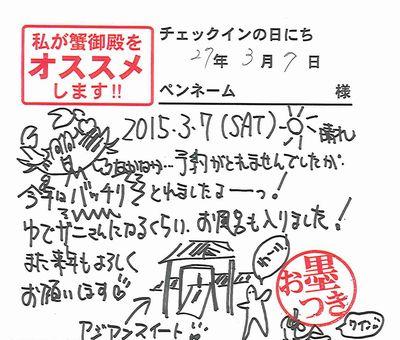 私が蟹御殿を
オススメ
します!!
チェックインの日にち
27年 3月 7日
ペンネーム 様
2015.3.7 (SAT) 晴れ
なかなか…予約がとれませんでしたが
今年はバッチリとれましたよーーっ!
ゆでガニさんになるくらい、お風呂も入りました!
また来年もよろしく
お願いします♡
アジアンスイート
お墨つき
ワイン